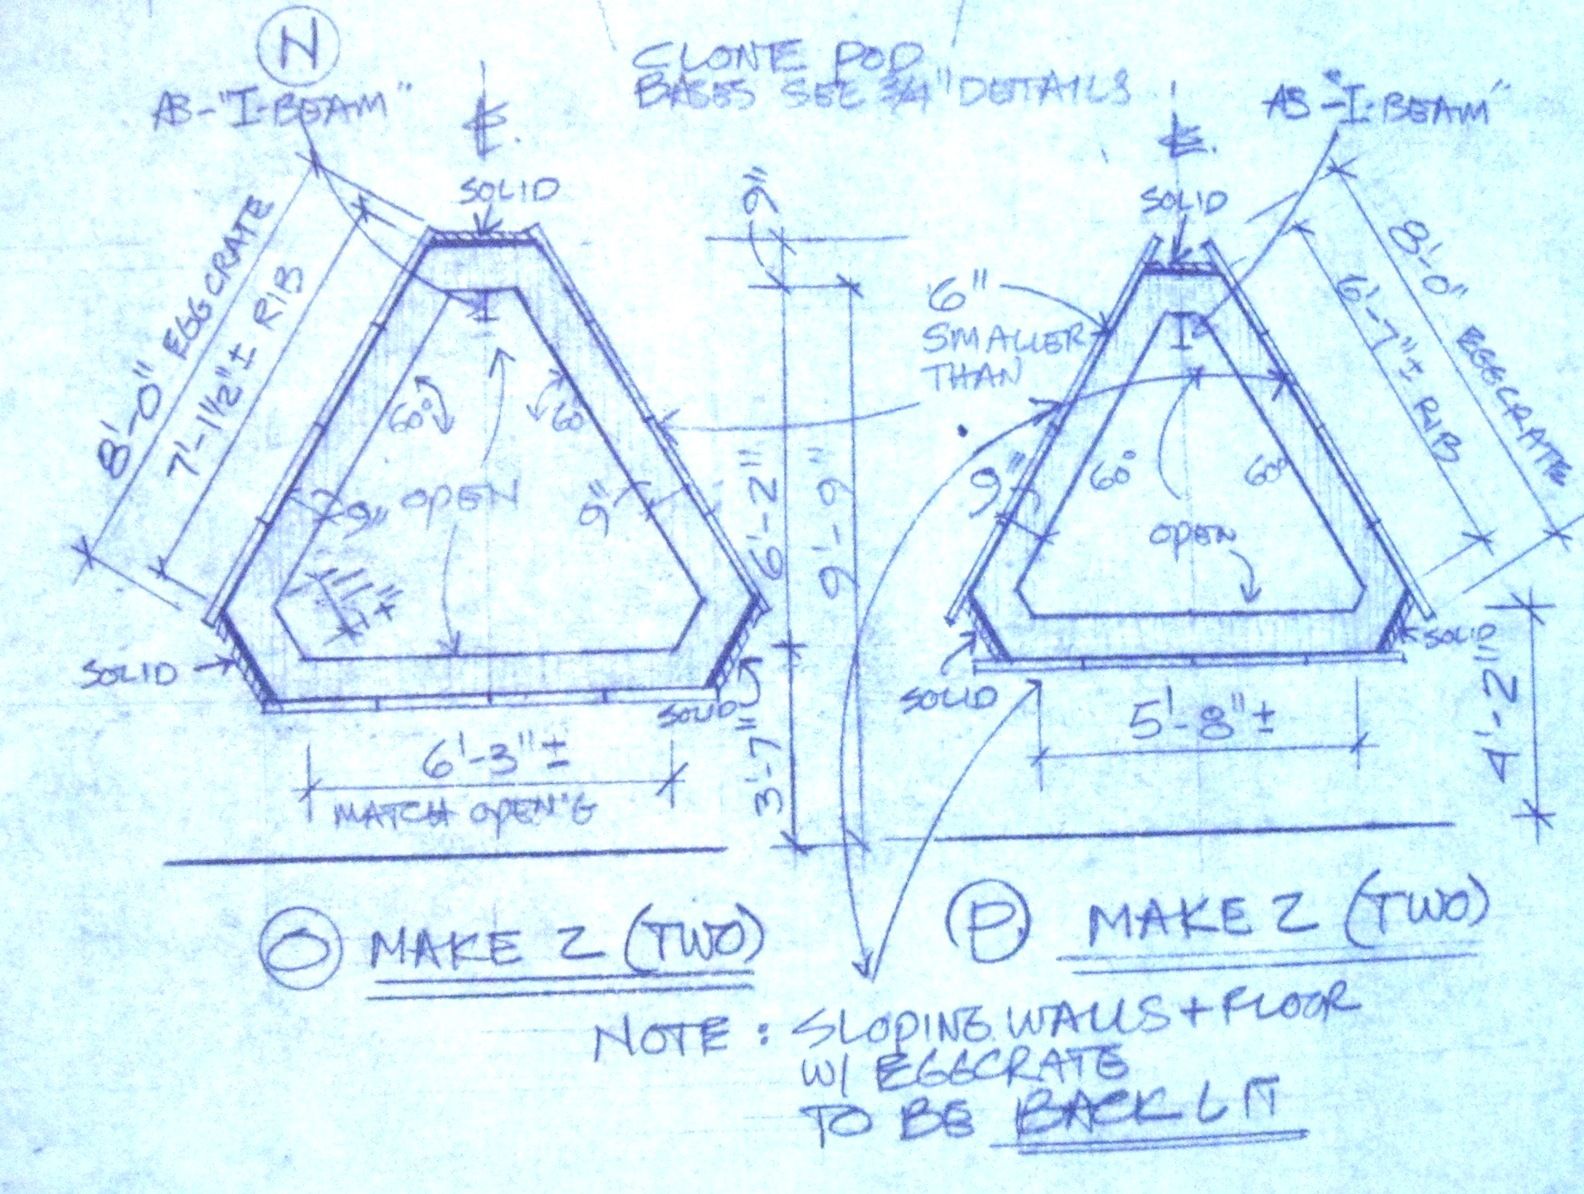 N
CLONE POD
BASES SEE 3/4" DETAILS
AB-"I-BEAM"
AB-"I-BEAM"
SOLID
SOLID
9"
8'-0" EGGCRATE
7'-1 1/2" ± RIB
6"
SMALLER
THAN
8'-0" EGGCRATE
6'-7" ± RIB
60°
60°
60°
60°
9"
OPEN
9"
9"
OPEN
6'-2"
9'-9"
SOLID
SOLID
SOLID
SOLID
6'-3" ±
MATCH OPEN'G
3'-7"
5'-8" ±
4'-2"
O MAKE 2 (TWO)
P MAKE 2 (TWO)
NOTE: SLOPING WALLS + FLOOR
W/ EGGCRATE
TO BE BACK LIT